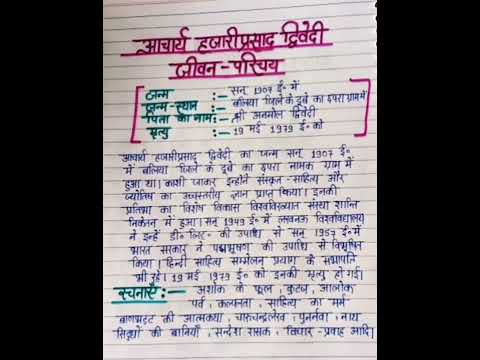 आचार्य हजारीप्रसाद द्विवेदी
जीवन-परिचय
जन्म :- सन् 1907 ई० में
जन्म-स्थान :- बलिया जिले के दुबे का छपरा ग्राम में
पिता का नाम :- श्री अनमोल द्विवेदी
मृत्यु :- 19 मई 1979 ई० को
आचार्य हजारीप्रसाद द्विवेदी का जन्म सन् 1907 ई०
में बलिया जिले के दुबे का छपरा नामक ग्राम में
हुआ था। काशी जाकर इन्होंने संस्कृत-साहित्य और
ज्योतिष का उच्चस्तरीय ज्ञान प्राप्त किया। इनकी
प्रतिभा का विशेष विकास विश्वविख्यात संस्था शान्ति
निकेतन में हुआ। सन् 1949 ई० में लखनऊ विश्वविद्यालय
ने इन्हें डी० लिट्० की उपाधि से सन् 1957 ई० में
भारत सरकार ने पद्मभूषण की उपाधि से विभूषित
किया। हिन्दी साहित्य सम्मेलन प्रयाग के सभापति
भी रहे। 19 मई 1979 ई० को इनकी मृत्यु हो गई।
रचनाएँ :- अशोक के फूल, कुटज, आलोक
पर्व, कल्पलता, साहित्य का मर्म
बाणभट्ट की आत्मकथा, चारुचन्द्रलेख, पुनर्नवा, नाथ
सिद्धों की बानियाँ, सन्देश रासक, विचार-प्रवाह आदि।